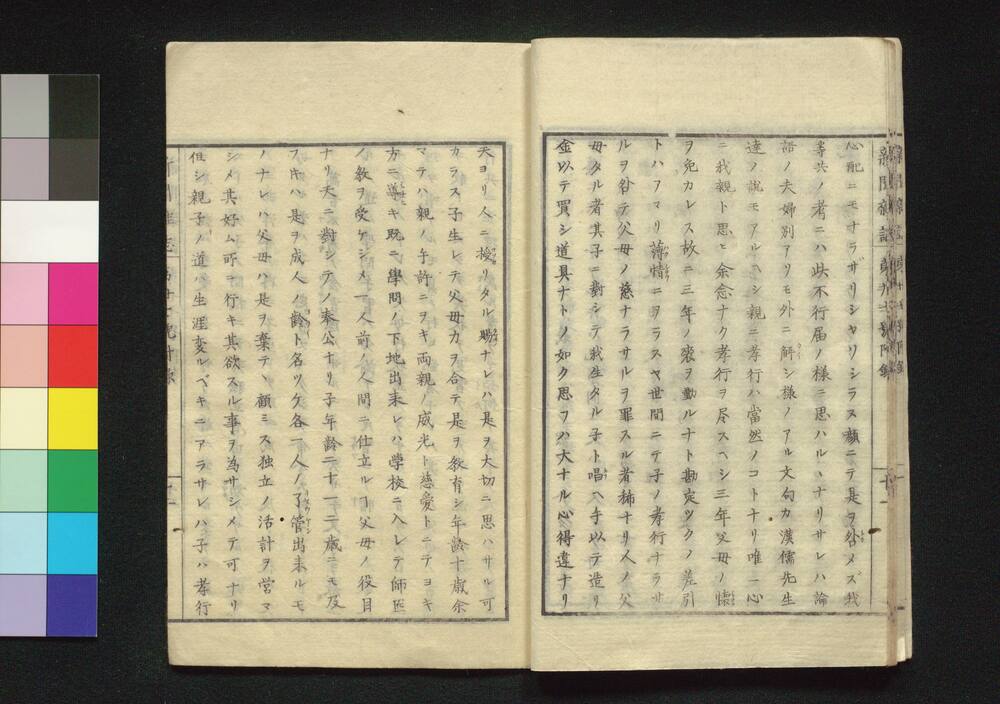 心配ニモオラザリシヤリシラス顔ニテ是ヲ咎メズ我
等共ノ者ニハ此不行届ノ様ニ思ハルヽナリサレハ論
語ノ夫婦別アリモ外ニ解シ様ノアル文句カ漢儒先生
達ノ説モアルヘシ親ニ孝行ハ當然ノコトナリ唯一心
ニ我親ト思ヒ余念ナク孝行ヲ尽スヘシ三年父母ノ懐
ヲ免カレス故ニ三年ノ喪ヲ勤ルナト勘定ツクノ差引
トハアマリ薄情ニヲラスヤ世間ニテ子ノ孝行ナラサ
ルヲ咎テ父母ノ慈ナラサルヲ罪スル者稀ナリ人ノ父
母タル者其子ニ對シテ我生タル子ト唱ヘ手以テ造リ
金以テ買シ道具ナトノ如ク思フハ大ナル心得違ナリ
天ヨリ人ニ授リタル賜ナレハ是ヲ大切ニ思ハサル可
カラス子生レテ父母力ヲ合テ是ヲ教育シ年齢十歳余
マテハ親ノ手許ニヲキ両親ノ威光ト慈愛トニテヨキ
方ニ導キ既ニ學問ノ下地出来レハ学校ニ入レテ師匠
ノ教ヲ受ケシメ一人前ノ人間ニ仕立ルコ父母ノ役目
ナリ天ニ對シテノ奉公ナリ子年齢二十一二歳ニモ及
フ𪜈ハ是ヲ成人ノ齢ト名ツケ各一人ノ了管出来ルモ
ノナレハ父母ハ是ヲ棄テヽ顧ミス独立ノ活計ヲ営マ
シメ其好ム所ニ行キ其欲スル事ヲ為サシメテ可ナリ
但シ親子ノ道ハ生涯変ルベキニアラサレハ子ハ孝行